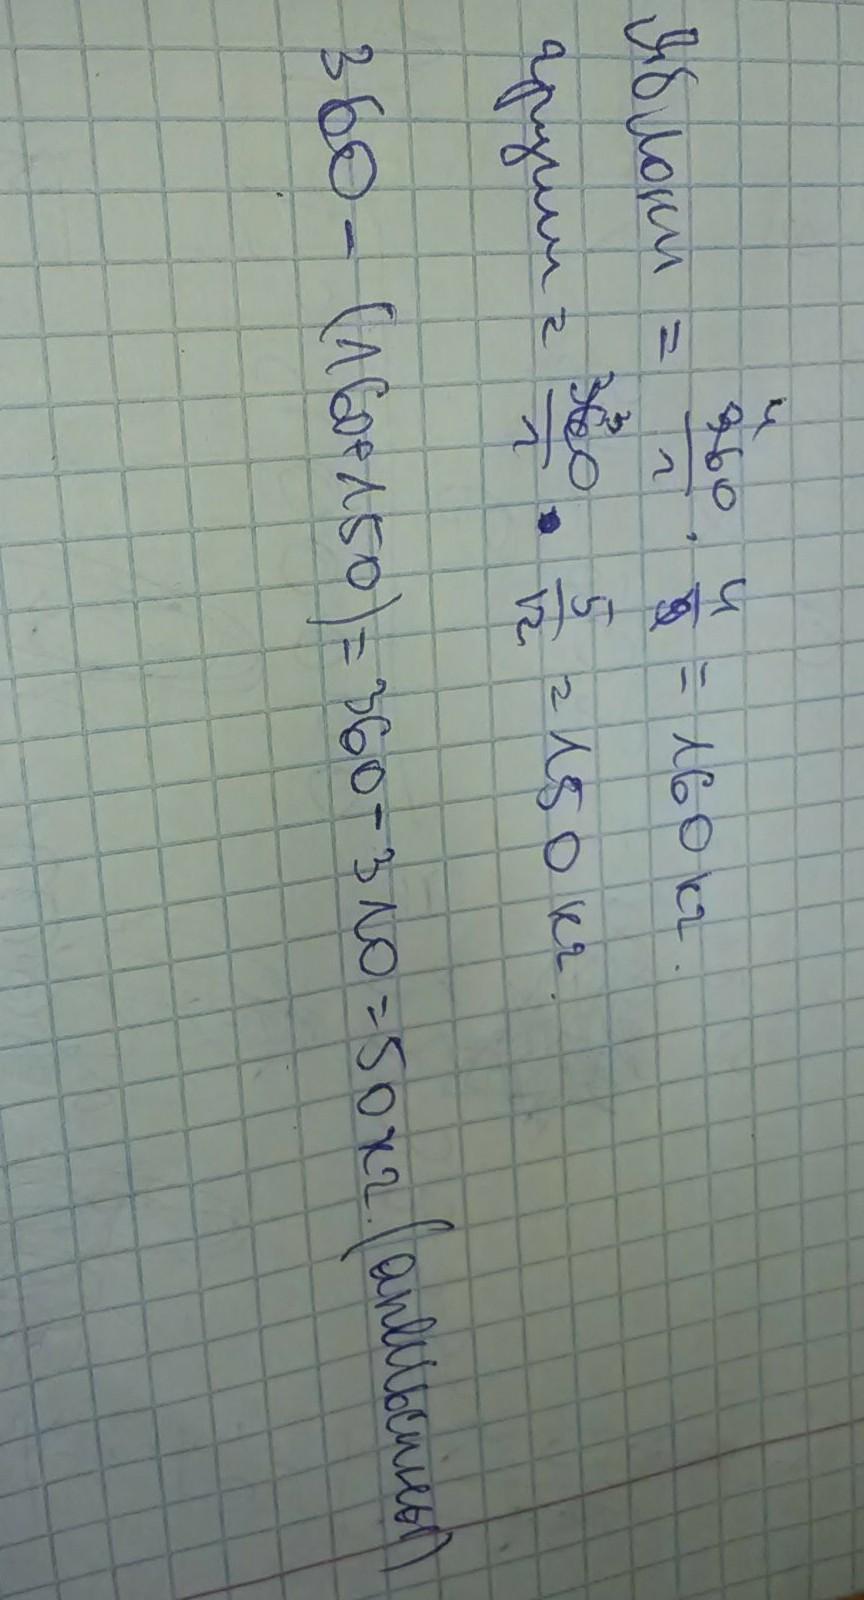 Яблоки = 360/1 · 4/9 = 160 кг.
груши = 360/1 · 5/12 = 150 кг.
360 - (160+150) = 360 - 310 = 50 кг. (апельсины)